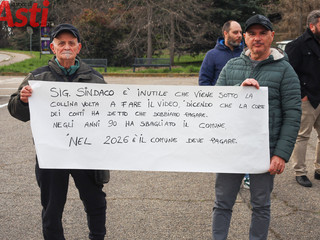 Asti
SIG. SINDACO È INUTILE CHE VIENE SOTTO LA
COLLINA VOLTA A FARE IL VIDEO, DICENDO CHE LA CORTE
DEI CONTI HA DETTO CHE DOBBIAMO PAGARE.
NEGLI ANNI 90 HA SBAGLIATO IL COMUNE
NEL 2026 È IL COMUNE DEVE PAGARE